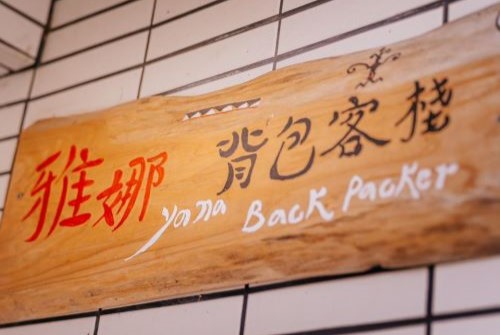 雅娜 背包客棧
yana Back Packer